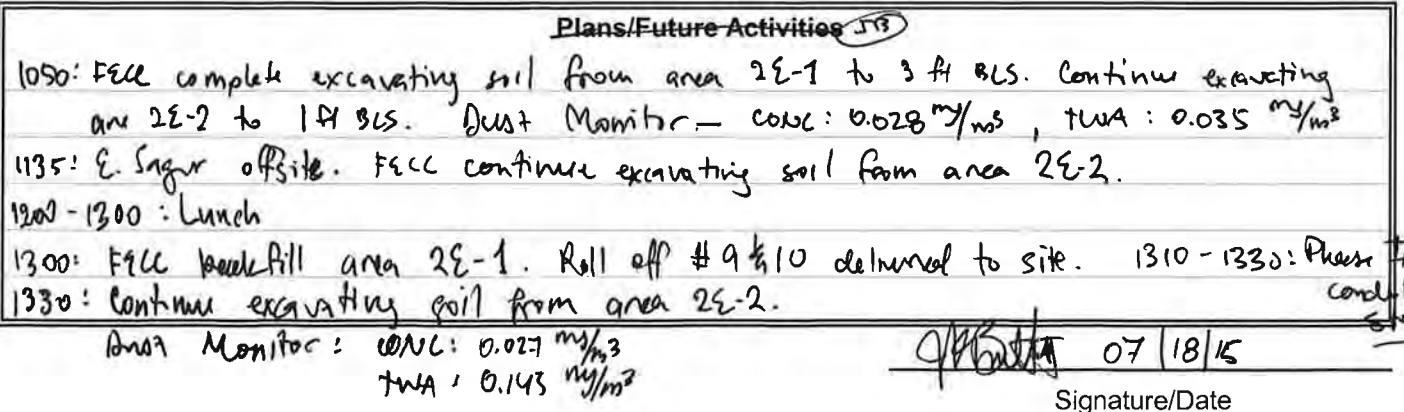 Plans/Future Activities JB
1050: FECC complete excavating soil from area 2E-1 to 3 ft BLS. Continue excavating
are 2E-2 to 1 ft BLS. Dust Monitor - CONC: 0.028 mg/m3, TWA: 0.035 mg/m3
1135: E. offsite. FECC continue excavating soil from area 2E-2.
1200-1300: Lunch
1300: FECC backfill area 2E-1. Roll off # 9 & 10 delivered to site. 1310-1330:
1330: Continue excavating soil from area 2E-2.
Dust Monitor: CONC: 0.027 mg/m3
TWA: 0.143 mg/m3
07/18/15
Signature/Date